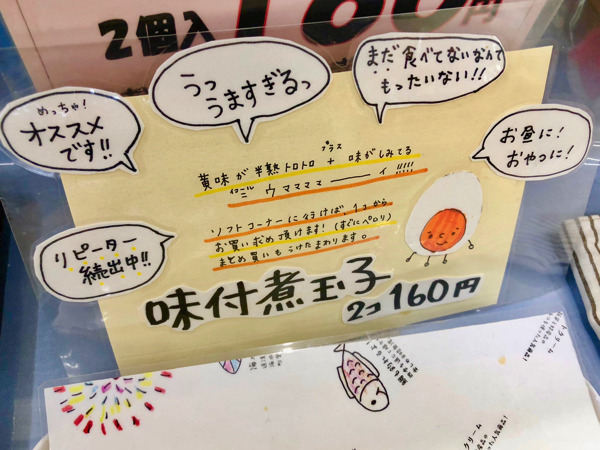 2個入 160円
まだ食べてないなんて
もったいない!!
うっ
うますぎるっ
めっちゃ!
オススメ
です!!
お昼に!
おやつに!
プラス
黄味が半熟トロトロ + 味がしみてる
ウママママ――ィ!!!!!
ソフトコーナーに行けば、1コから
お買い求め頂けます!(すぐにペロリ)
まとめ買いもうけたまわります。
リピーター
続出中!!
味付煮玉子
2コ160円